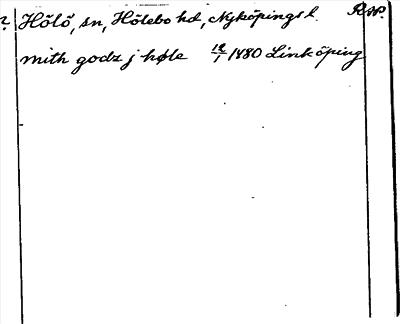 ? Hölö, sn, Hölebo hd, Nyköpings l.
mith godz j høle 12/1 1480 Linköping